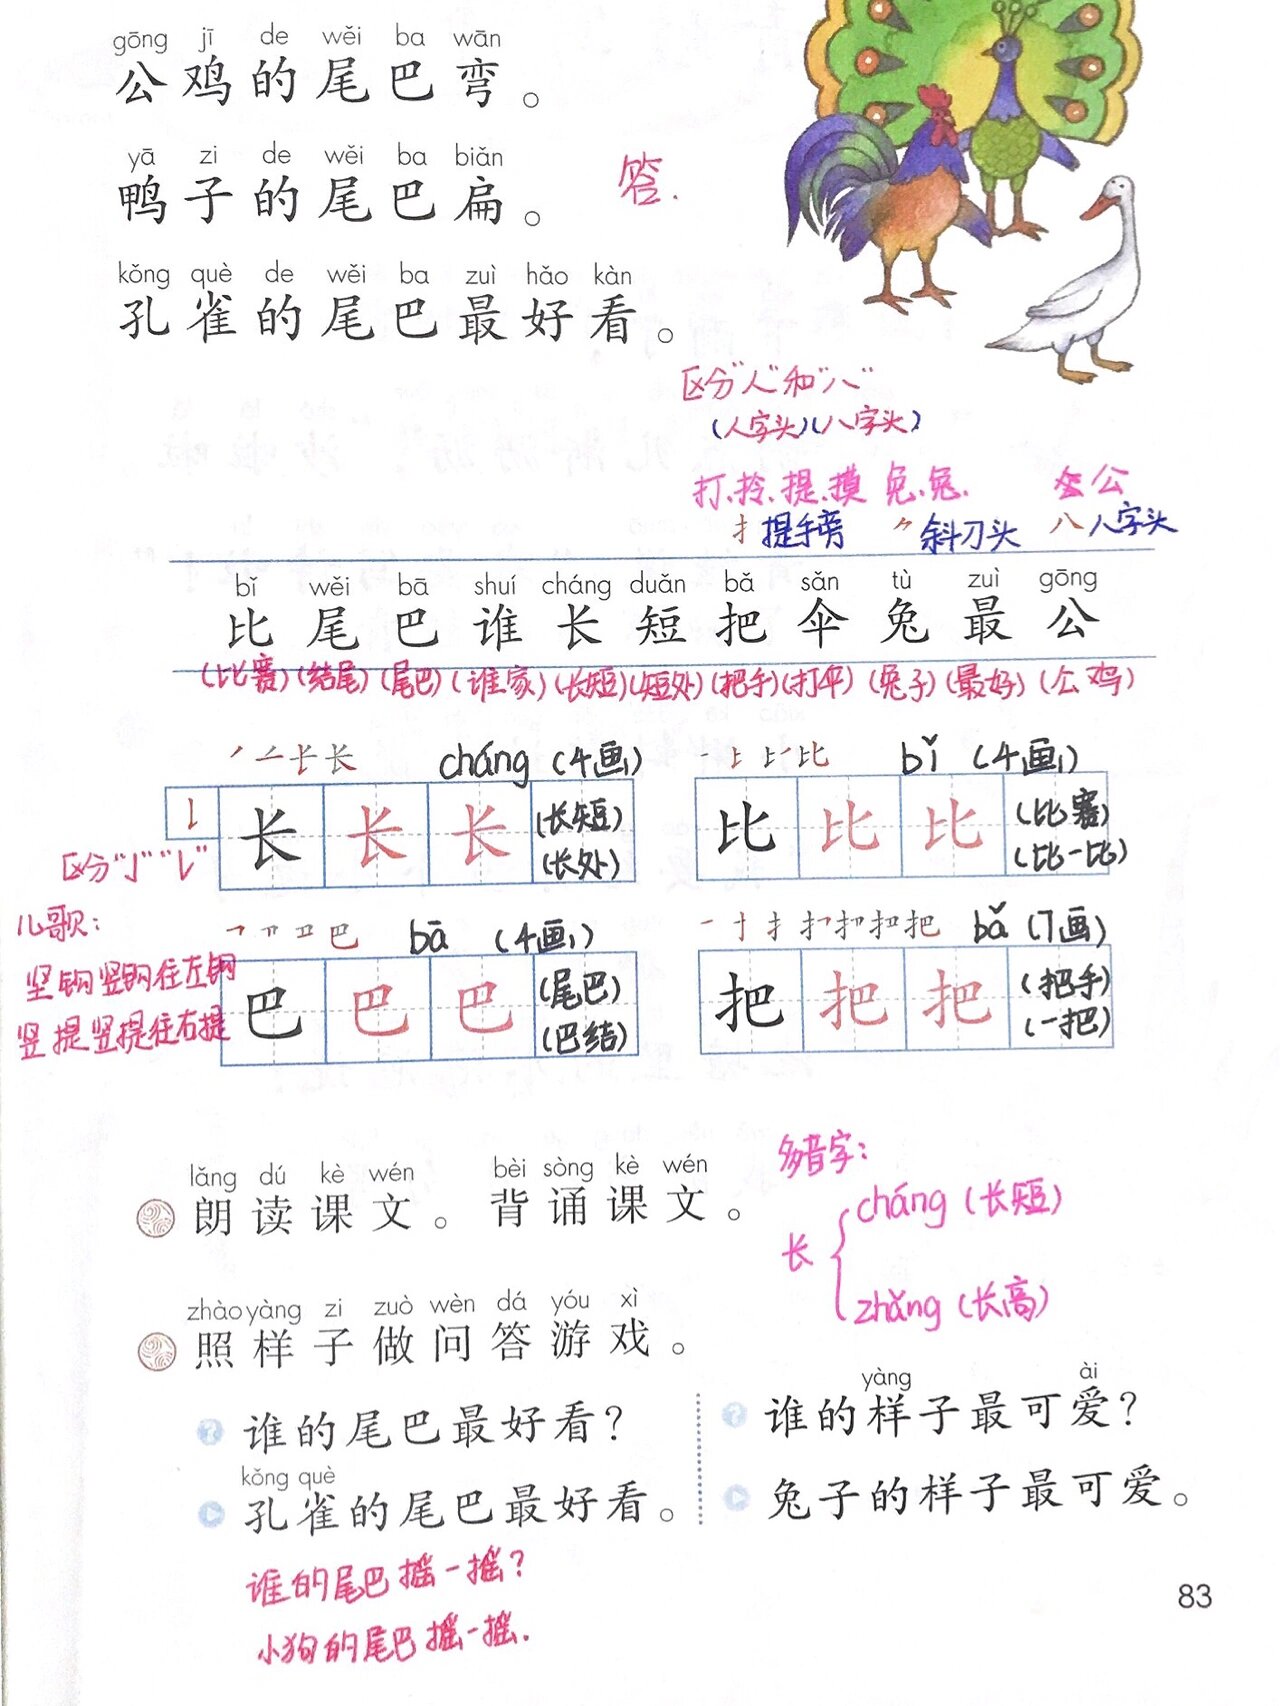 gōng jī de wěi ba wān
公鸡的尾巴弯。
yā zi de wěi ba biǎn
鸭子的尾巴扁。
答.
kǒng què de wěi ba zuì hǎo kàn
孔雀的尾巴最好看。
区分"人"和"八"
(人字头)(八字头)
打、拎、提、摸 免、兔. 公
扌提手旁 ⺈斜刀头 八八字头
bǐ wěi bā shuí cháng duǎn bǎ sǎn tù zuì gōng
比尾巴谁长短把伞兔最公
(比赛)(结尾)(尾巴)(谁家)(长短)(短处)(把手)(打伞)(兔子)(最好)(公鸡)
cháng (4画)
长 长 长 (长短)
(长处)
区分"亅""𠄌"
bǐ (4画)
比 比 比 (比赛)
(比一比)
儿歌:
竖钩竖钩往左钩
竖提竖提往右提
bā (4画)
巴 巴 巴 (尾巴)
(巴结)
bǎ (7画)
把 把 把 (把手)
(一把)
lǎng dú kè wén bèi sòng kè wén
朗读课文。背诵课文。
多音字:
长 cháng (长短)
zhǎng (长高)
zhào yàng zi zuò wèn dá yóu xì
照样子做问答游戏。
谁的尾巴最好看?
kǒng què
孔雀的尾巴最好看。
yàng ài
谁的样子最可爱?
兔子的样子最可爱。
谁的尾巴摇一摇?
小狗的尾巴摇一摇.
83